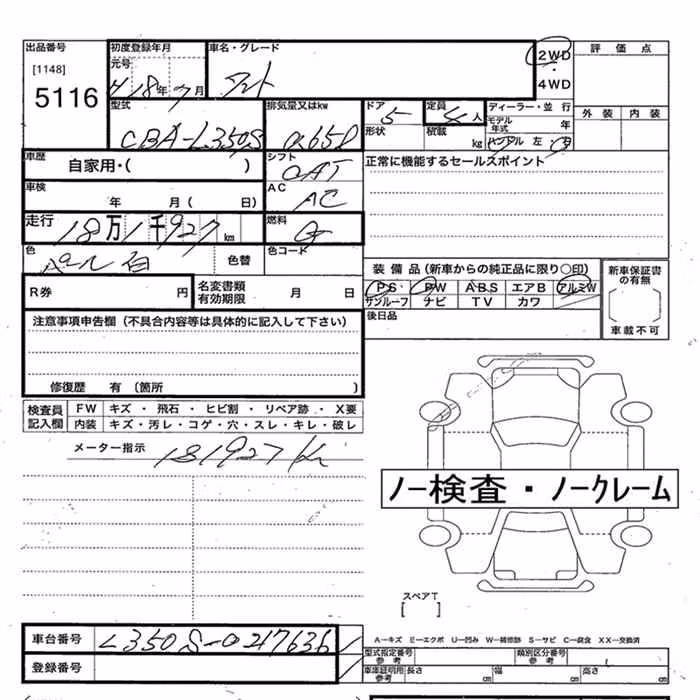 出品番号 初度登録年月 車名・グレード 2WD 評価点
[1148] 元号 ・
5116 H18年7月 タント 4WD
型式 排気量又はkw ドア 定員 ディーラー・並行 外装 内装
CBA-L350S 0.65 5 4人 モデル年式 年
形状 積載 kg ハンドル 左 右
車歴 シフト 正常に機能するセールスポイント
自家用・( ) OAT
車検 年 月( 日) AC AC
走行 18万1千927km 燃料 G
色 パール白 色替 色コード
装備品(新車からの純正品に限り○印) 新車保証書の有無
R券 円 名変書類有効期限 月 日 PS PW ABS エアB アルミW
サンルーフ ナビ TV カワ 車載不可
注意事項申告欄(不具合内容等は具体的に記入して下さい) 後日品
修復歴 有 (箇所 )
検査員記入欄 FW キズ・飛石・ヒビ割・リペア跡・X要
内装 キズ・汚レ・コゲ・穴・スレ・キレ・破レ
メーター指示 181927 K
ノー検査・ノークレーム
スペアT
[ ]
車台番号 L350S-0217636 A-キズ E-エクボ U-凹み W-補修跡 S-サビ C-腐食 XX-交換済
型式指定番号 参考 類別区分番号 参考
登録番号 車庫証明用 参考 長さ cm 幅 cm 高さ cm